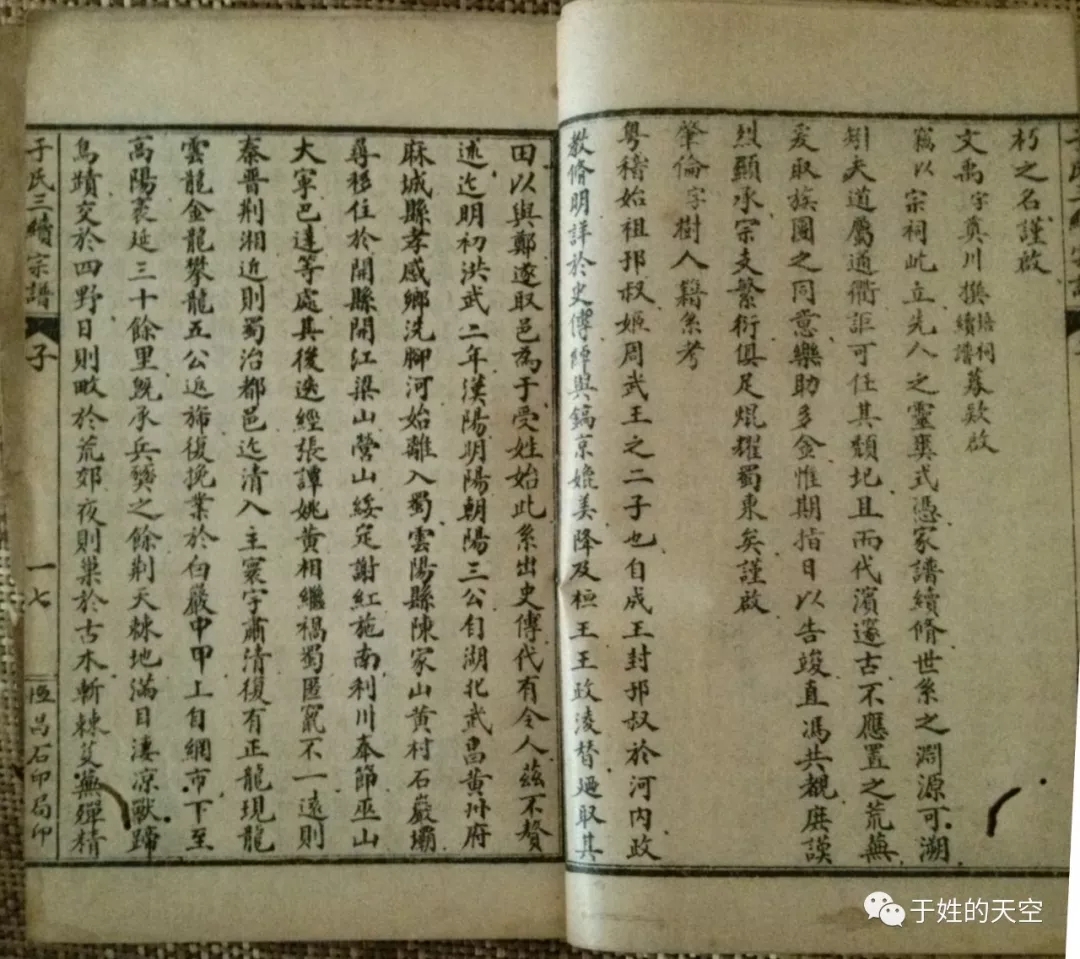 于氏三續宗譜
朽之名謹啟
文禹字真川撰續譜培祠募欵啟
竊以宗祠此立先人之靈爽式憑家譜續脩世系之淵源可溯
矧夫道屬通衢詎可任其頹圮且而代濱邃古不應置之荒蕪
爰取族圖之同意樂助多金惟期指日以告竣直馮共覩庶謨
烈顯承宗支繁衍俱足焜耀蜀東矣謹啟
肇倫字樹人籍系考
粵稽始祖邘叔姬周武王之二子也自成王封邘叔於河内政
教脩明詳於史傳綽與鎬京媲美降及桓王王政淩替廼取其
田以與鄭遂取邑為于受姓始此系出史傳代有令人茲不贅
述迄明初洪武二年漢陽明陽朝陽三公自湖北武昌黄州府
麻城縣孝感鄉洗腳河始離入蜀雲陽縣陳家山黄村石巖壩
尋移住於開縣開江梁山營山綏定謝紅施南利川奉節巫山
大寧巴逹等處其後迭經張譚姚黄相繼禍蜀匿竄不一遠則
秦晋荆湘近則蜀治都邑迄清入主寰宇肅清復有正龍現龍
雲龍金龍攀龍五公返斾復挽業於白嚴甲甲上自網市下至
高陽袤延三十餘里既承兵燹之餘荆天棘地滿目淒凉獸蹄
鳥蹟交於四野日則畋於荒郊夜則巢於古木斬棘芟蕪殫精
于氏三續宗譜
子
一七
昌石印局印
于姓的天空